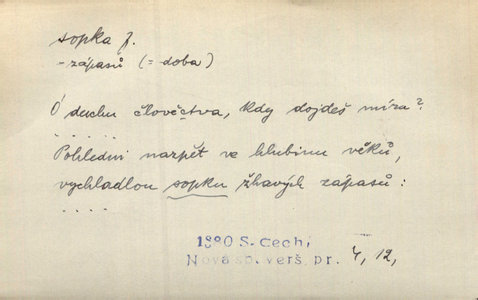 sopka f.
- zápasů (= doba)
Ó duchu člověčstva, kdy dojdeš míra?
. . . . . .
Pohledni nazpět ve hlubinu věků,
vychladlou sopku žhavých zápasů :
. . . .
1880 S. Čech,
Nová sb. verš. pr. 4, 12,